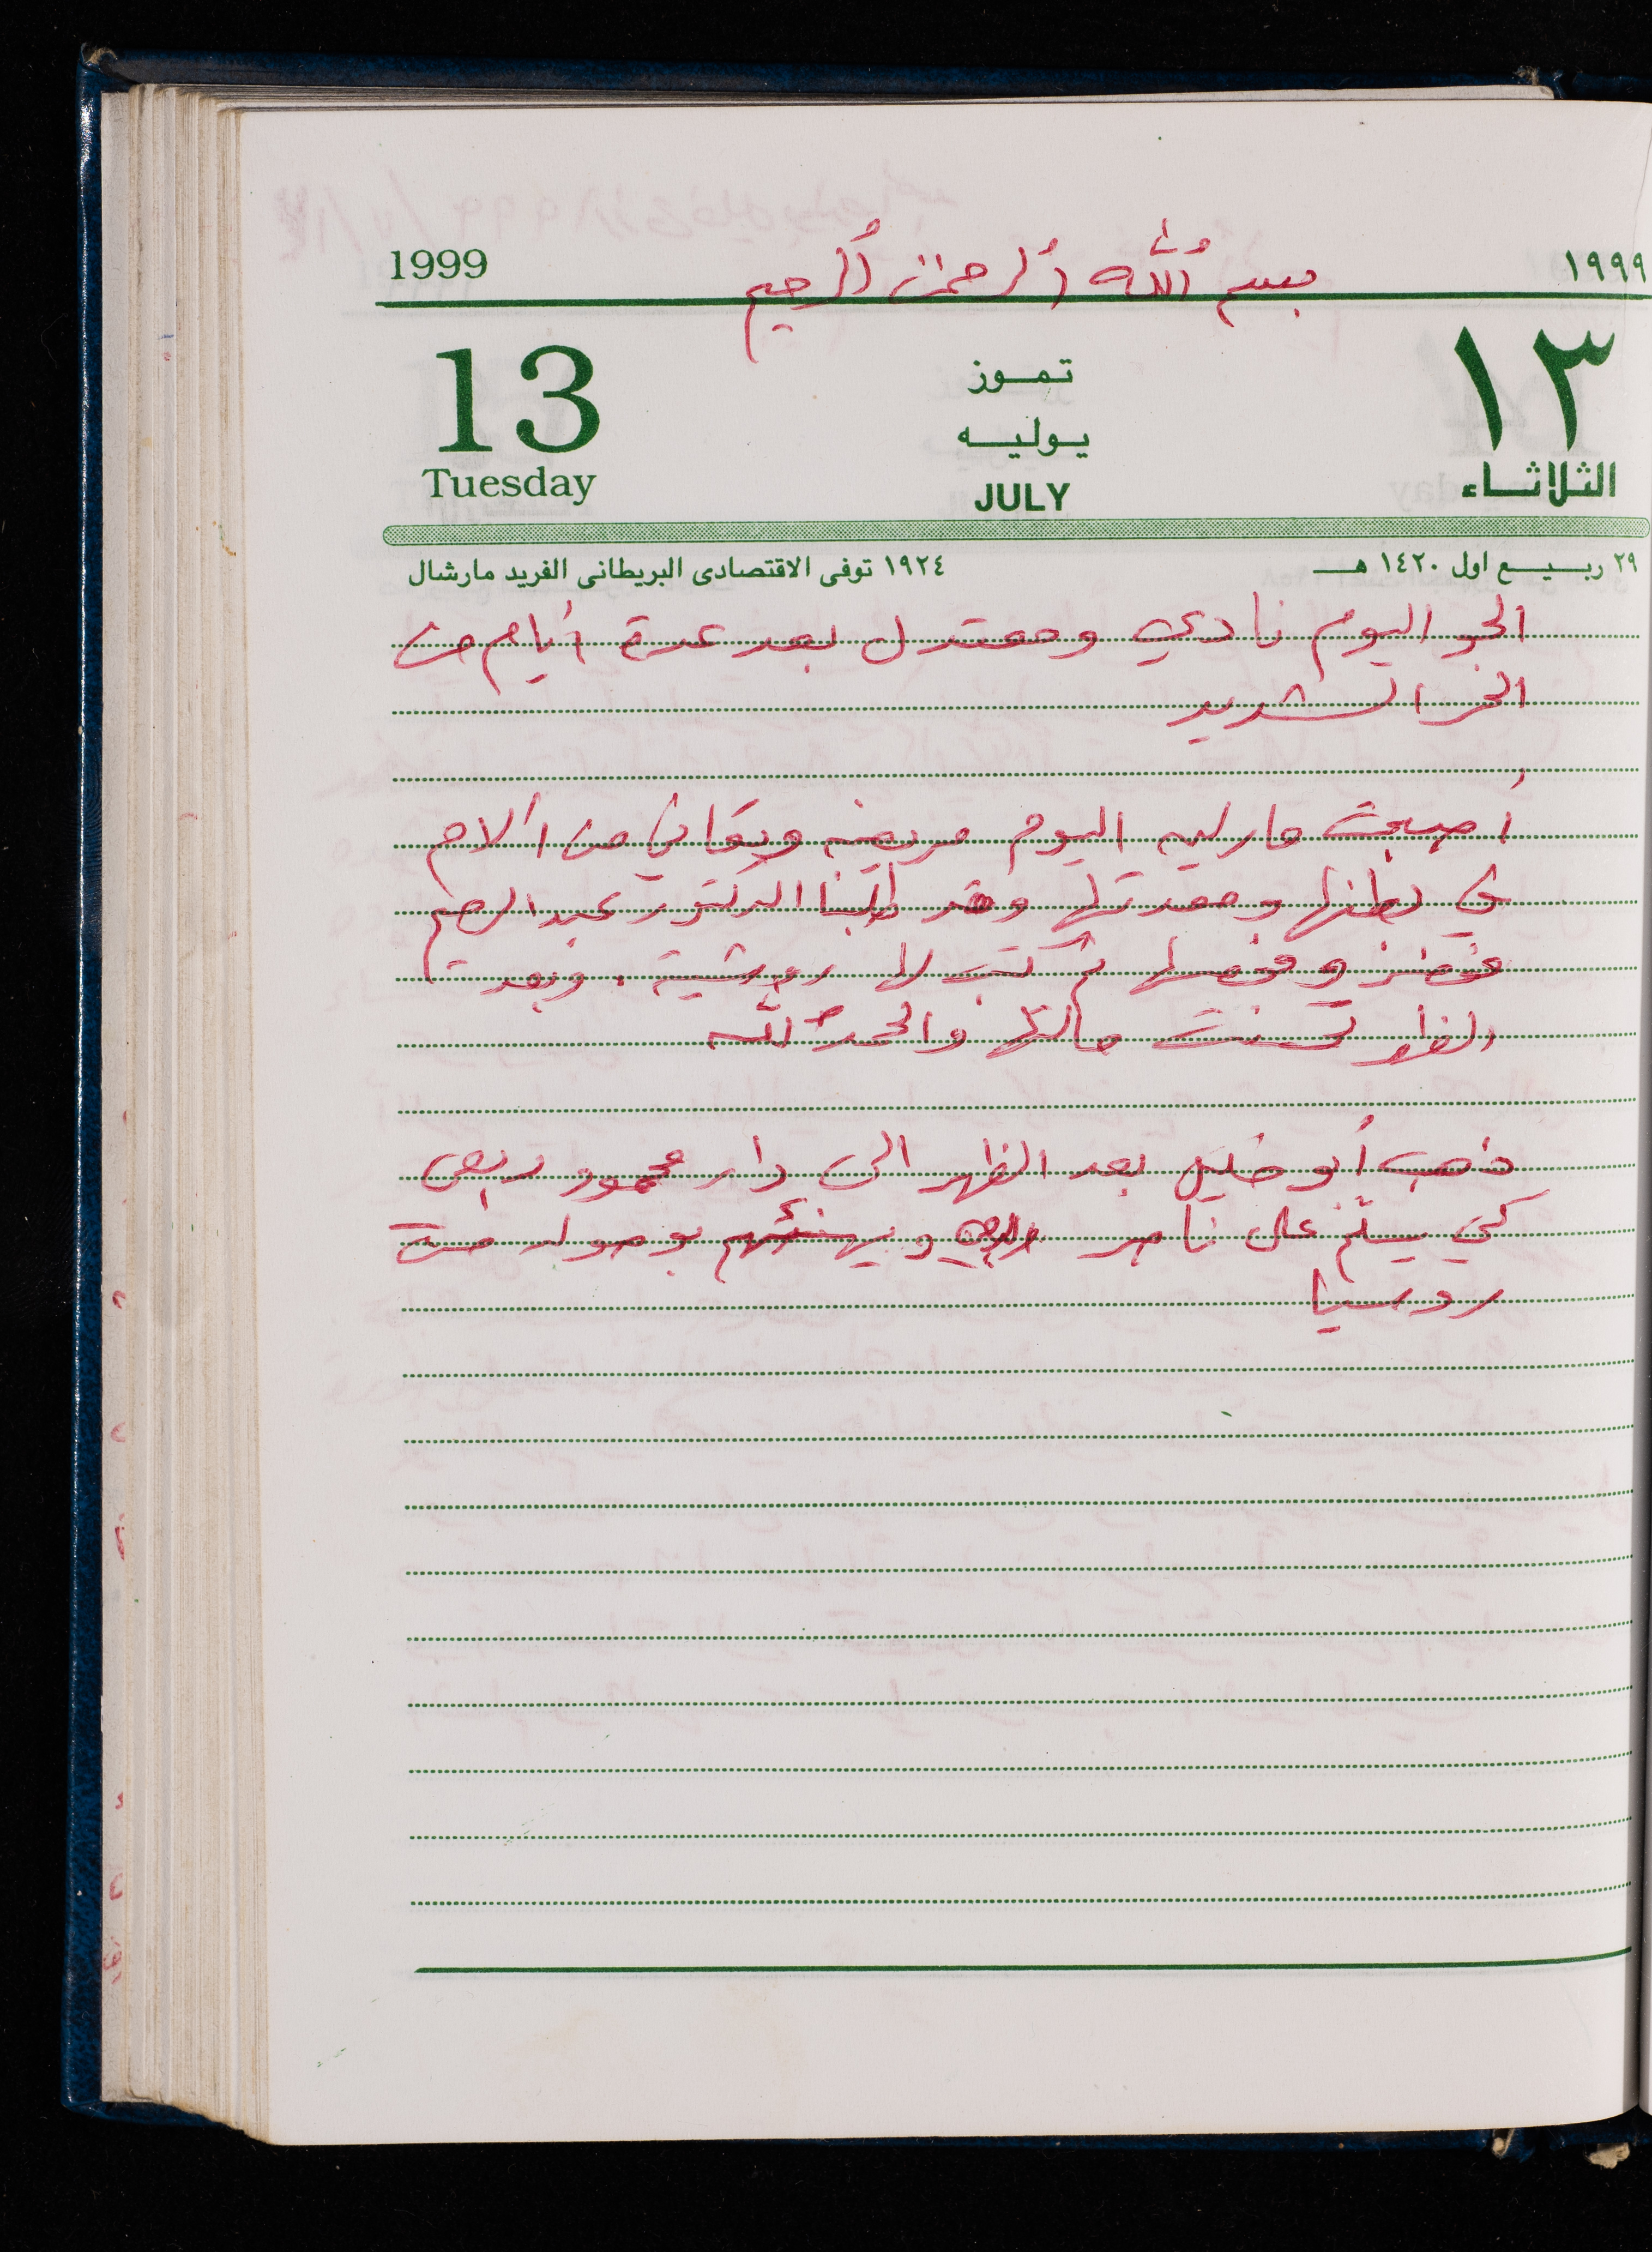 1999
بسم الله الرحمن الرحيم
١٩٩٩
13
تموز
١٣
يوليه
Tuesday
JULY
الثلاثاء
٢٩ ربيع اول ١٤٢٠ هـ
١٩٢٤ توفى الاقتصادى البريطانى الفريد مارشال
الجو اليوم نادي ومعتدل بعد عدة أيام من
الحر الشديد
أصبحت مارليه اليوم مريضه وتعاني من آلام
في بطنها ومعدتها وقد طلبنا الدكتور عبد الرحيم
فحضر وفحصها ثم كتب لها روشيتة. وبعد
الظهر تحسنت حالتها والحمد لله
ذهب أبو خليل بعد الظهر الى دار محمود ربعى
كي يسلم على ناصر ويهنئهم بوصوله من
روسيا